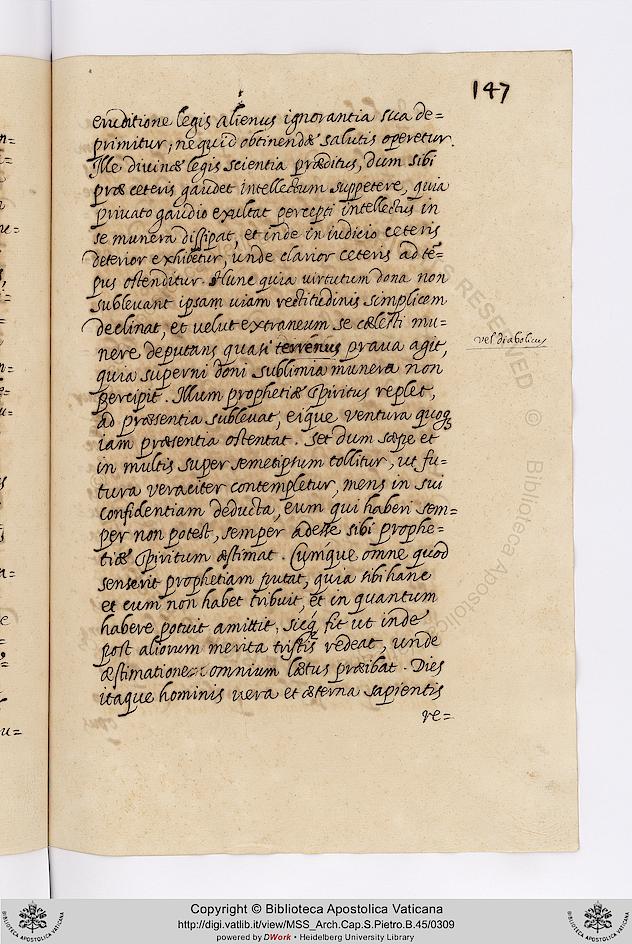 147
eruditione legis alienus ignorantia sua de=
primitur; nequid obtinendæ salutis operetur.
Ille diuinæ legis scientia præditus, dum sibi
præ ceteris gaudet intellectum suppetere, quia
priuato gaudio exultat percepti intellectus in
se munera dissipat, et inde in iudicio ceteris
deterior exhibetur, unde clarior ceteris ad tē=
pus ostenditur. Hunc quia uirtutum dona non
subleuant ipsam uiam rectitudinis simplicem
declinat, et velut extraneum se cælesti mu=
nere deputans quasi terrenus praua agit,
vel diabolicus
quia superni doni sublimia munera non
percipit. Illum prophetiæ spiritus replet,
ad præsentia subleuat, eique ventura quoq
iam præsentia ostentat. Set dum sæpe et
in multis super semetipsum tollitur, ut fu=
tura veraciter contempletur, mens in sui
confidentiam deducta, eum qui haberi sem=
per non potest, semper adesse sibi prophe=
tiæ spiritum æstimat. Cumque omne quod
senserit prophetiam putat, quia sibi hanc
et cum non habet tribuit, et in quantum
habere potuit amittit, sicq fit ut inde
post aliorum merita tristis redeat, unde
æstimatione omnium lætus præibat. Dies
itaque hominis uera et æterna sapientis
re=
RIGHTS RESERVED © Biblioteca Apostolica
Copyright © Biblioteca Apostolica Vaticana
http://digi.vatlib.it/view/MSS_Arch.Cap.S.Pietro.B.45/0309
powered by DWork • Heidelberg University Library